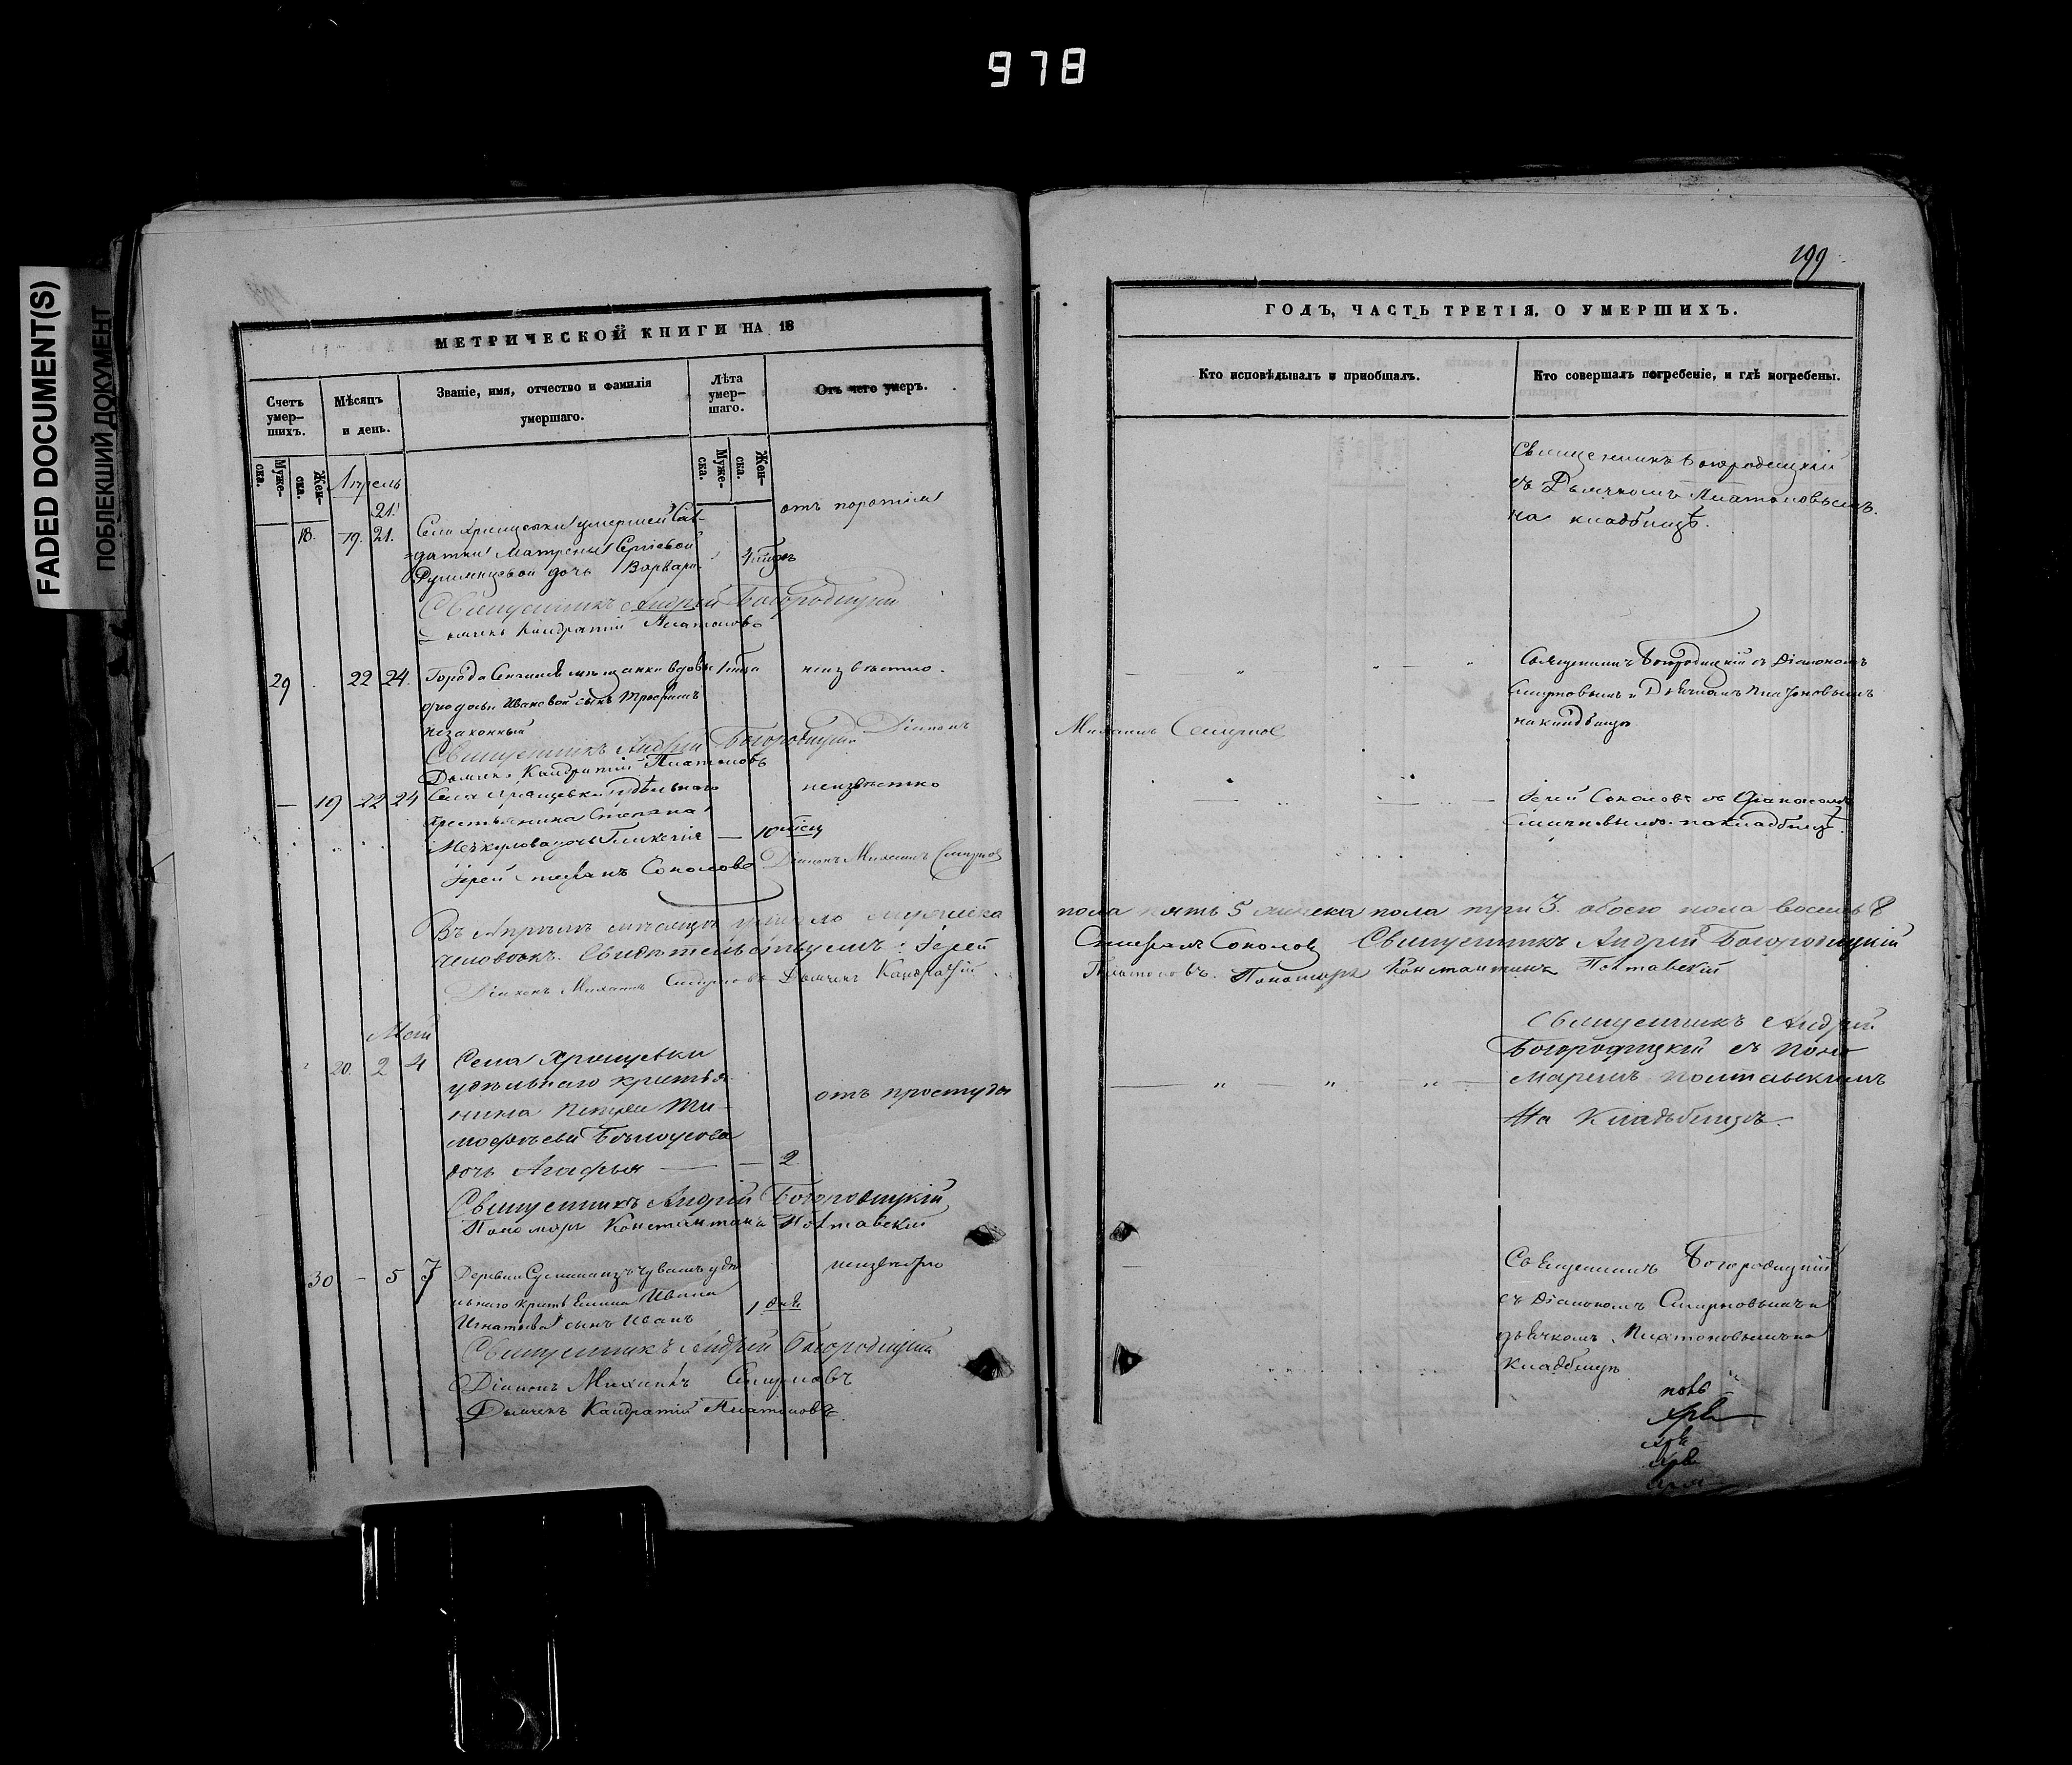 978
FADED DOCUMENT(S)
ПОБЛЕКШИЙ ДОКУМЕНТ
МЕТРИЧЕСКОЙ КНИГИ НА 18
Счетъ умер-шихъ.
Мѣсяцъ и день.
Званіе, имя, отчество и фамилія умершаго.
Лѣта умер-шаго.
Отъ чего умеръ.
Муже-ска.
Жен-ска.
Муже-ска.
Жен-ска.
Апрель
21.
18. 19. 21. Села умершей Сол-
датки Матрены Сергіевой
дочь Варвара
Священникъ Андрей Богородицкій
Дьячекъ Кандратій Платоновъ
29 22 24. Города мѣщанки вдовы неизвѣстно.
Ивановой сынъ Трофимъ
незаконный
Священникъ Андрей Богородицкій Діаконъ
Дьячекъ Кандратій Платоновъ
— 19 22 24 Села удѣльнаго неизвѣстно
крестьянина Степана
дочь Гликерія — 10 мѣсяц
Іерей Стефанъ Соколовъ Діаконъ Михаилъ Смирнов
Въ Апрѣлѣ мѣсяцѣ умерло мужеска
человѣкъ. Іерей
Діаконъ Михаилъ Смирновъ Дьячекъ Кандратій
Май
20. 2 4 Села Хрящевки
удѣльнаго крестья-
нина Петра Ти-
мофѣева Бѣлоусова
дочь Агафья — — 2
отъ простуды
Священникъ Андрей Богородицкій
Пономарь Константинъ Полтавскій
30 — 5 7 Деревни удѣ
льнаго Ивана неизвѣстно
Игнатьева сынъ Иванъ 1 дня
Священникъ Андрей Богородицкій
Діаконъ Михаилъ Смирновъ
Дьячекъ Кандратій Платоновъ.
199
ГОДЪ, ЧАСТЬ ТРЕТІЯ, О УМЕРШИХЪ.
Кто исповѣдывалъ и пріобщалъ.
Кто совершалъ погребеніе, и гдѣ погребены.
Священникъ Богородицкій
съ Дьячкомъ Платоновымъ.
на кладбищѣ.
Священникъ Богородицкій съ Діакономъ
Смирновымъ и Дьячкомъ Платоновымъ
на кладбищѣ
Михаилъ Смирнов
Іерей Соколовъ съ Діакономъ
Смирновымъ на кладбищѣ.
пола пять 5 женска пола три 3. обоего пола восемь 8
Стефанъ Соколовъ Священникъ Андрей Богородицкій
Платоновъ. Пономарь Константинъ Полтавскій
Священникъ Андрей
Богородицкій съ Поно
маремъ Полтавскимъ
На Кладбищѣ.
Священникъ Богородицкій
съ Діакономъ Смирновымъ и
дьячкомъ Платоновымъ на
кладбищѣ